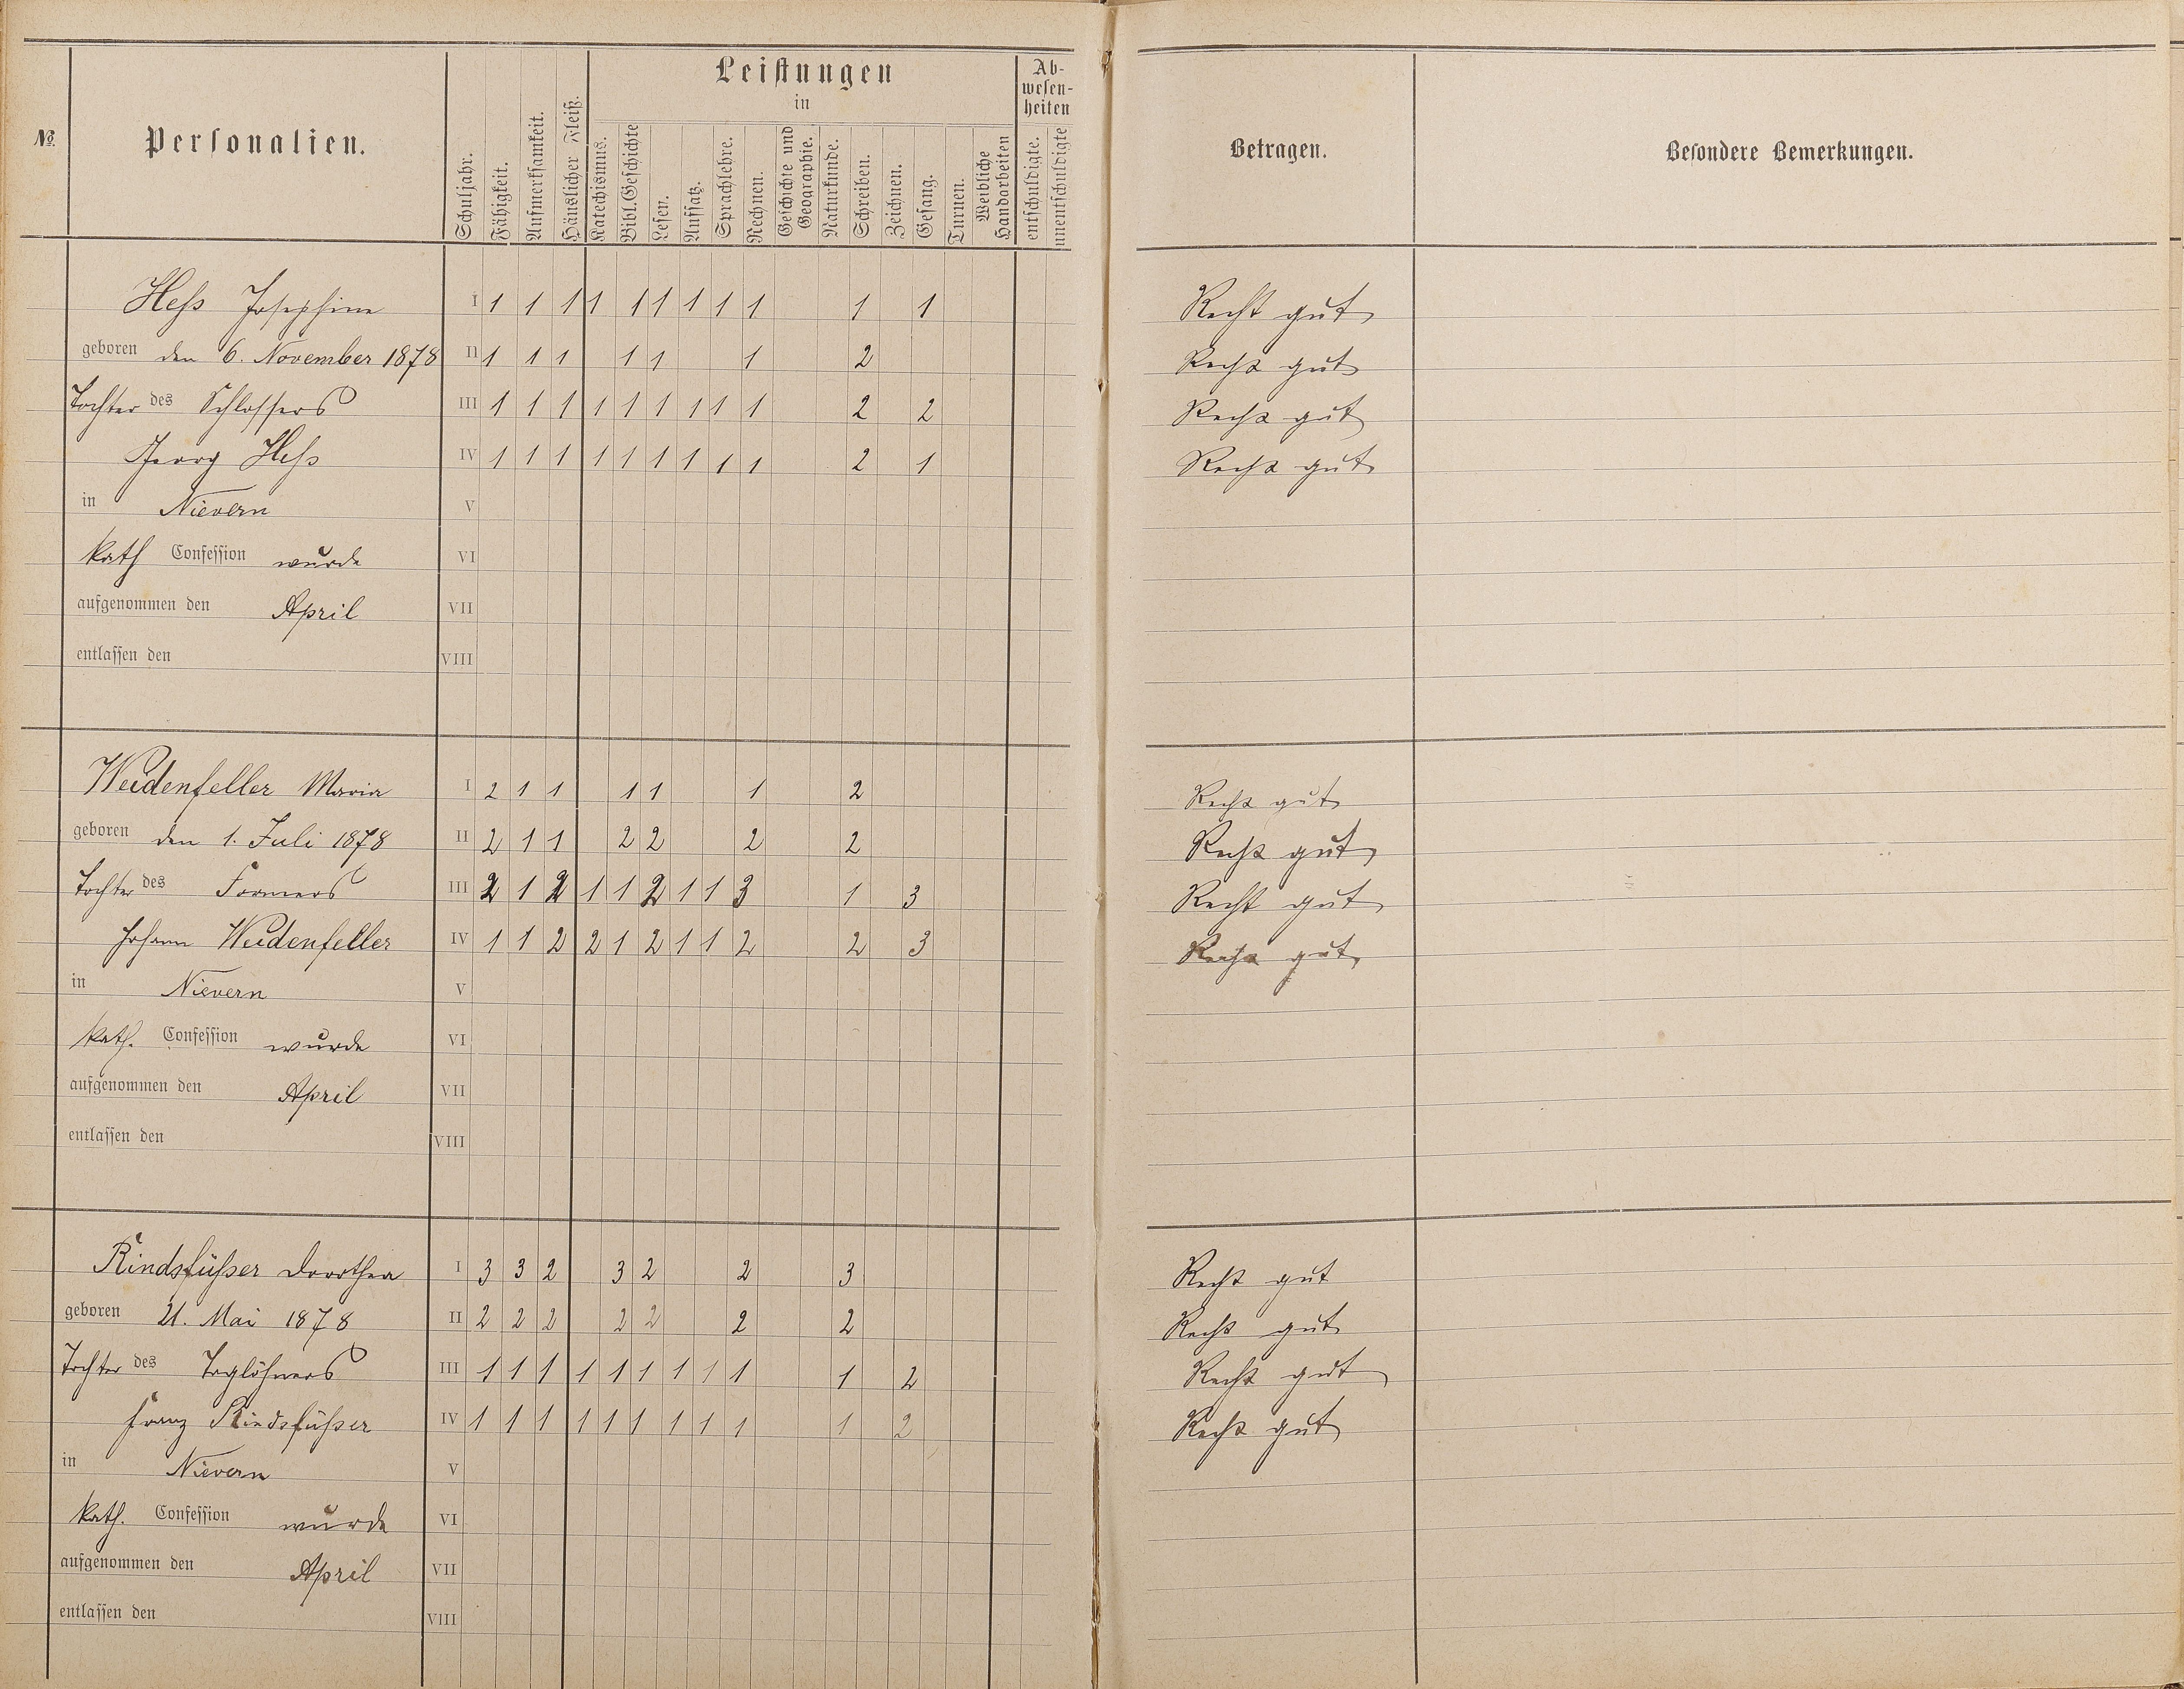 №
Personalien.
Schuljahr.
Fähigkeit.
Aufmerksamkeit.
Häuslicher Fleiß.
Leistungen
in
Katechismus.
Bibl. Geschichte
Lesen.
Aufsatz.
Sprachlehre.
Rechnen.
Geschichte und
Geographie.
Naturkunde.
Schreiben.
Zeichnen.
Gesang.
Turnen.
Weibliche
Handarbeiten
Ab-
wesen-
heiten
entschuldigte.
unentschuldigte
Betragen.
Besondere Bemerkungen.
Heß Josephine I 1 1 1 1 1 1 1 1 1 1 1 Recht gut
geboren den 6. November 1878 II 1 1 1 1 1 1 2 Recht gut
Tochter des Schlossers III 1 1 1 1 1 1 1 1 1 2 2 Recht gut
Georg Heß IV 1 1 1 1 1 1 1 1 1 2 1 Recht gut
in Nievern V
kath Confession wurde VI
aufgenommen den April VII
entlassen den VIII
Weidenfeller Maria I 2 1 1 1 1 1 2 Recht gut
geboren den 1. Juli 1878 II 2 1 1 2 2 2 2 Recht gut
Tochter des Formers III 2 1 2 1 1 2 1 1 3 1 3 Recht gut
Johann Weidenfeller IV 1 1 2 2 1 2 1 1 2 2 3 Recht gut
in Nievern V
kath. Confession wurde VI
aufgenommen den April VII
entlassen den VIII
Rindsfüßer Dorothea I 3 3 2 3 2 2 3 Recht gut
geboren 21. Mai 1878 II 2 2 2 2 2 2 2 Recht gut
Tochter des Taglöhners III 1 1 1 1 1 1 1 1 1 1 2 Recht gut
Franz Rindsfüßer IV 1 1 1 1 1 1 1 1 1 1 2 Recht gut
in Nievern V
kath. Confession wurde VI
aufgenommen den April VII
entlassen den VIII